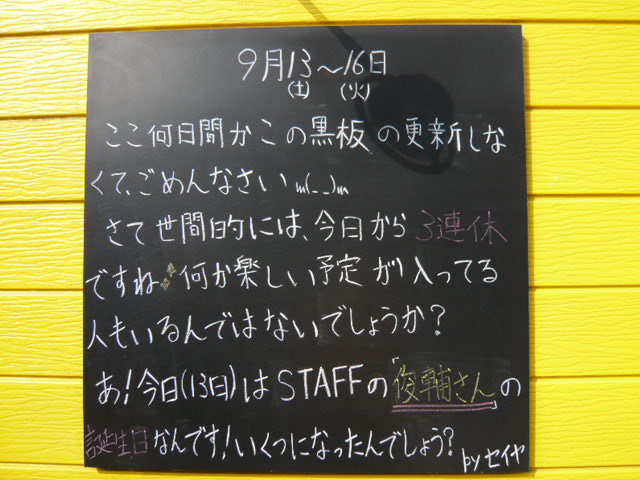 9月13～16日
(土) (火)
ここ何日間かこの黒板の更新しな
くて、ごめんなさいm(_ _)m
さて世間的には、今日から3連休
ですね。何か楽しい予定が入ってる
人もいるんではないでしょうか?
あ!今日(13日)はSTAFFの「俊輔さんの
誕生日なんです!いくつになったんでしょう?
byセイヤ